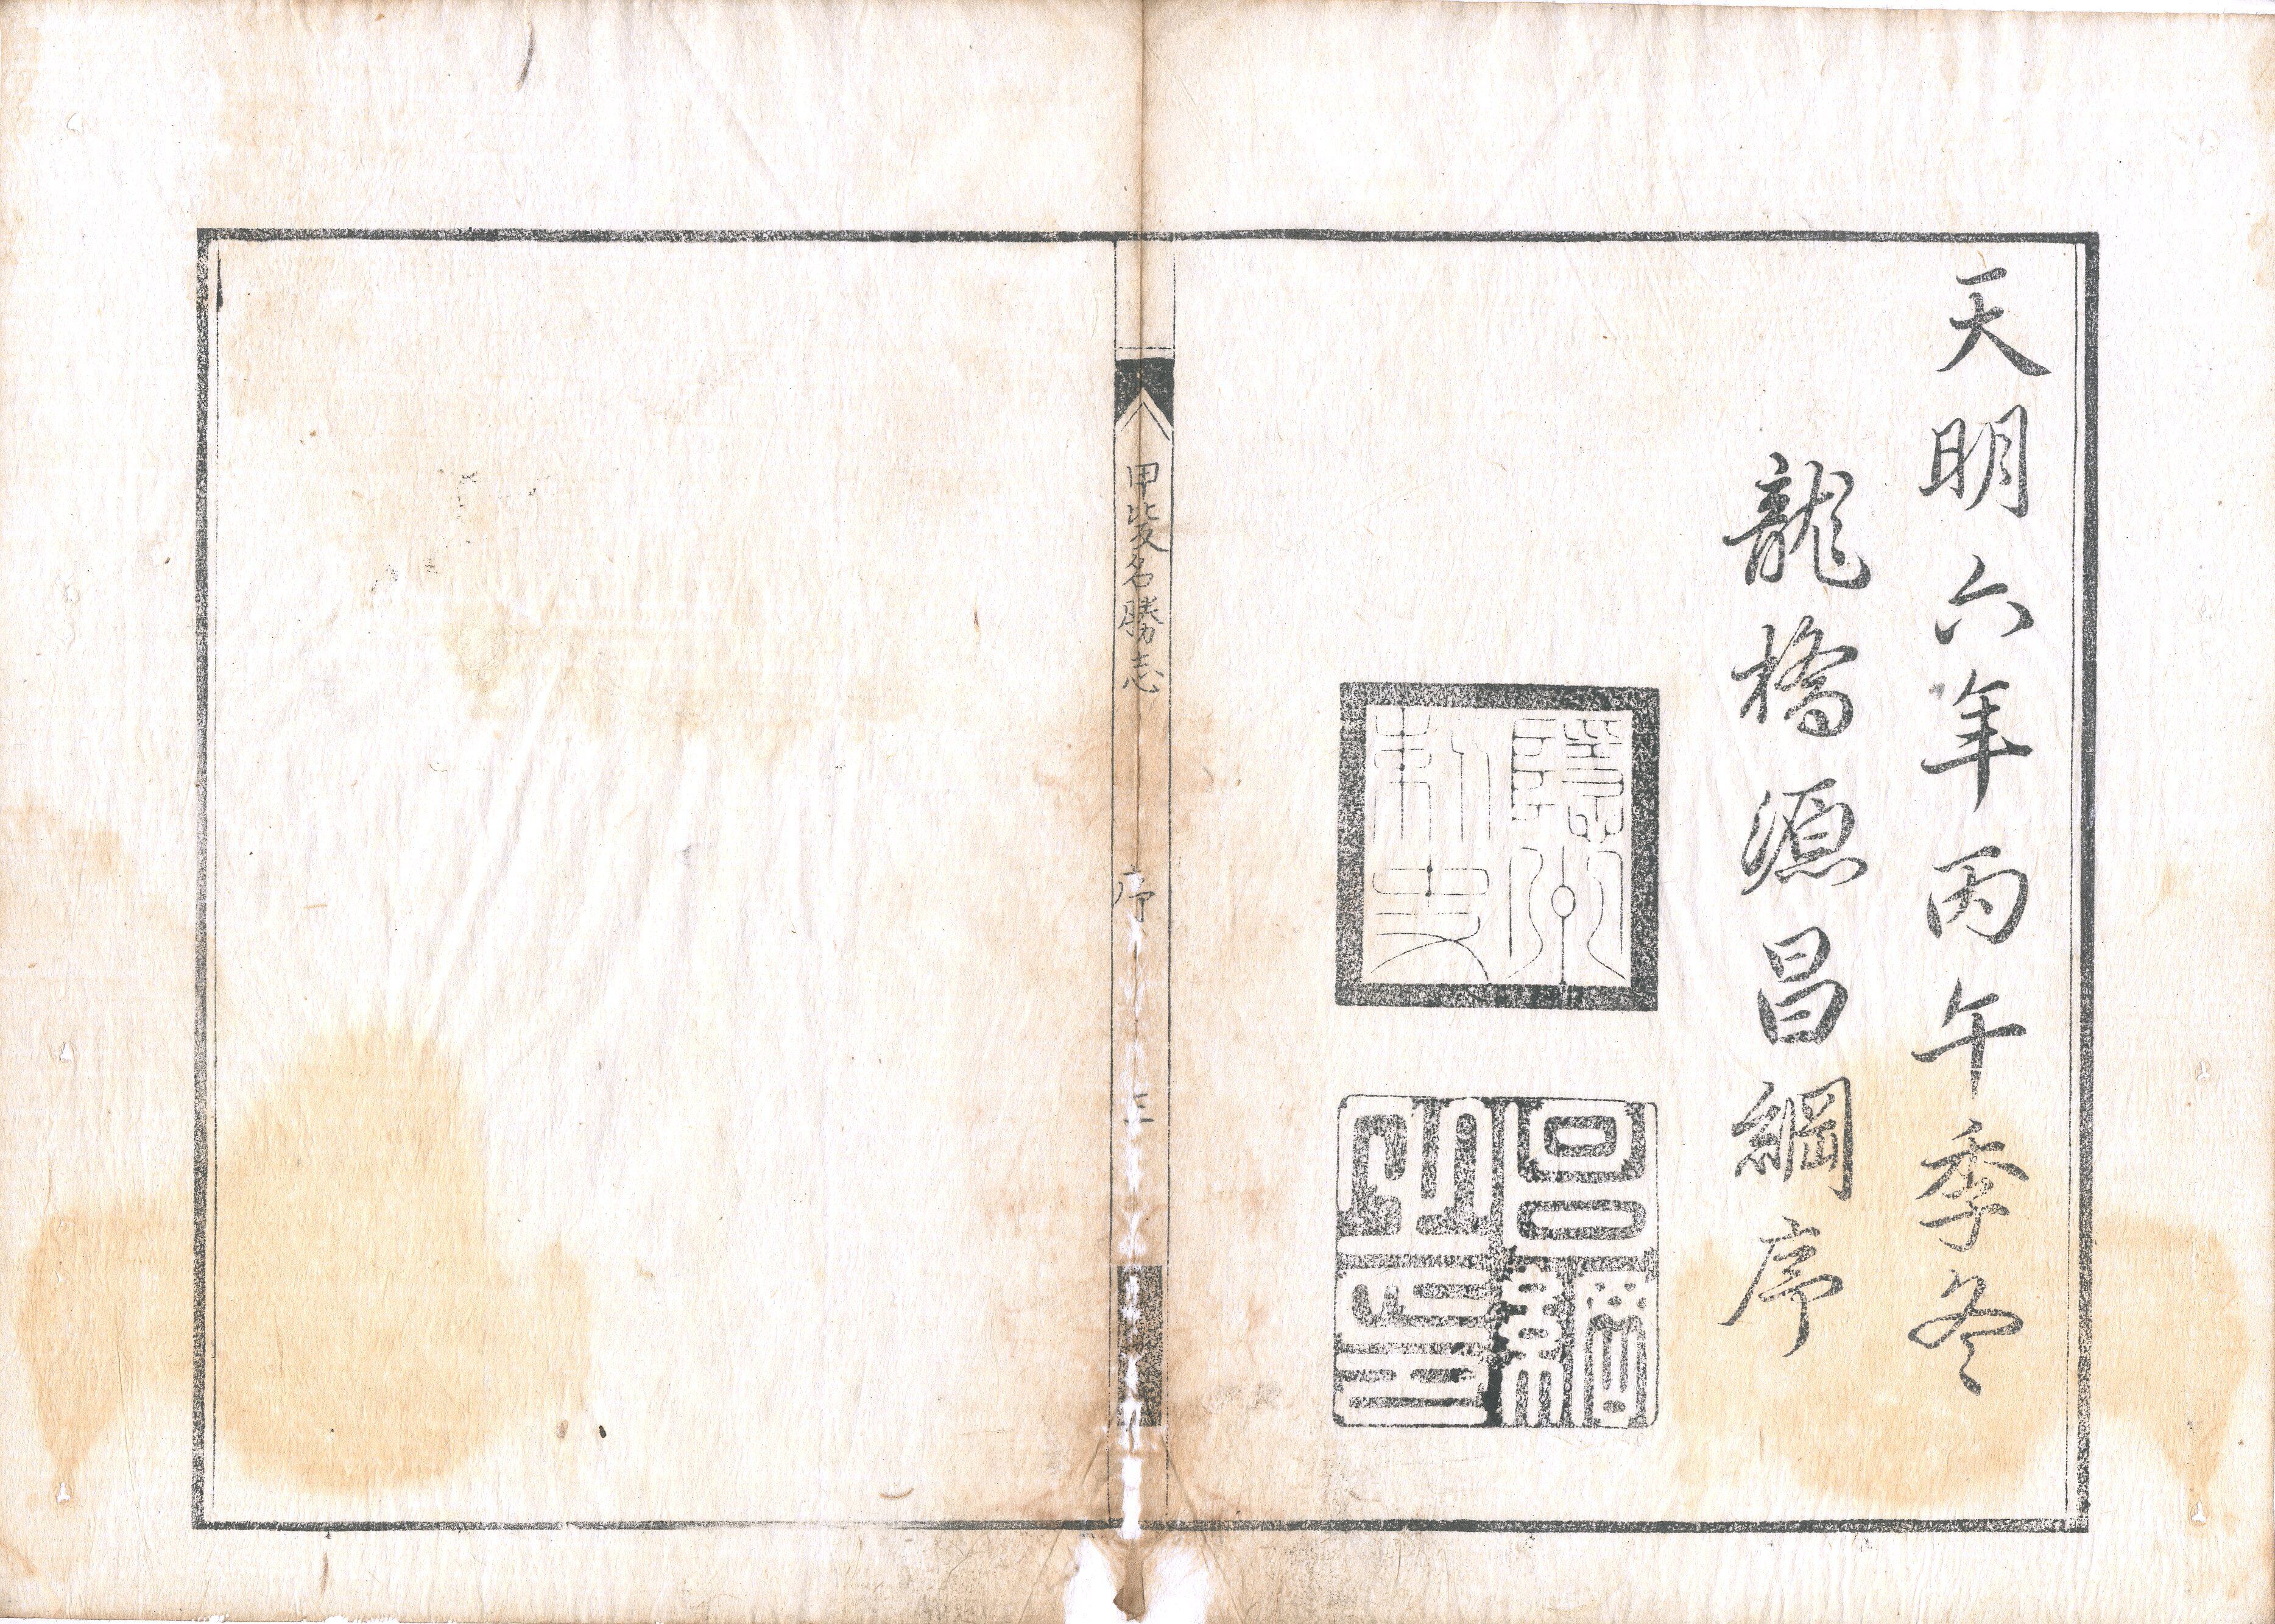 天明六年丙午季冬
龍橋源昌綱序
隱州刺史
昌綱之印
甲斐名勝志
序
三